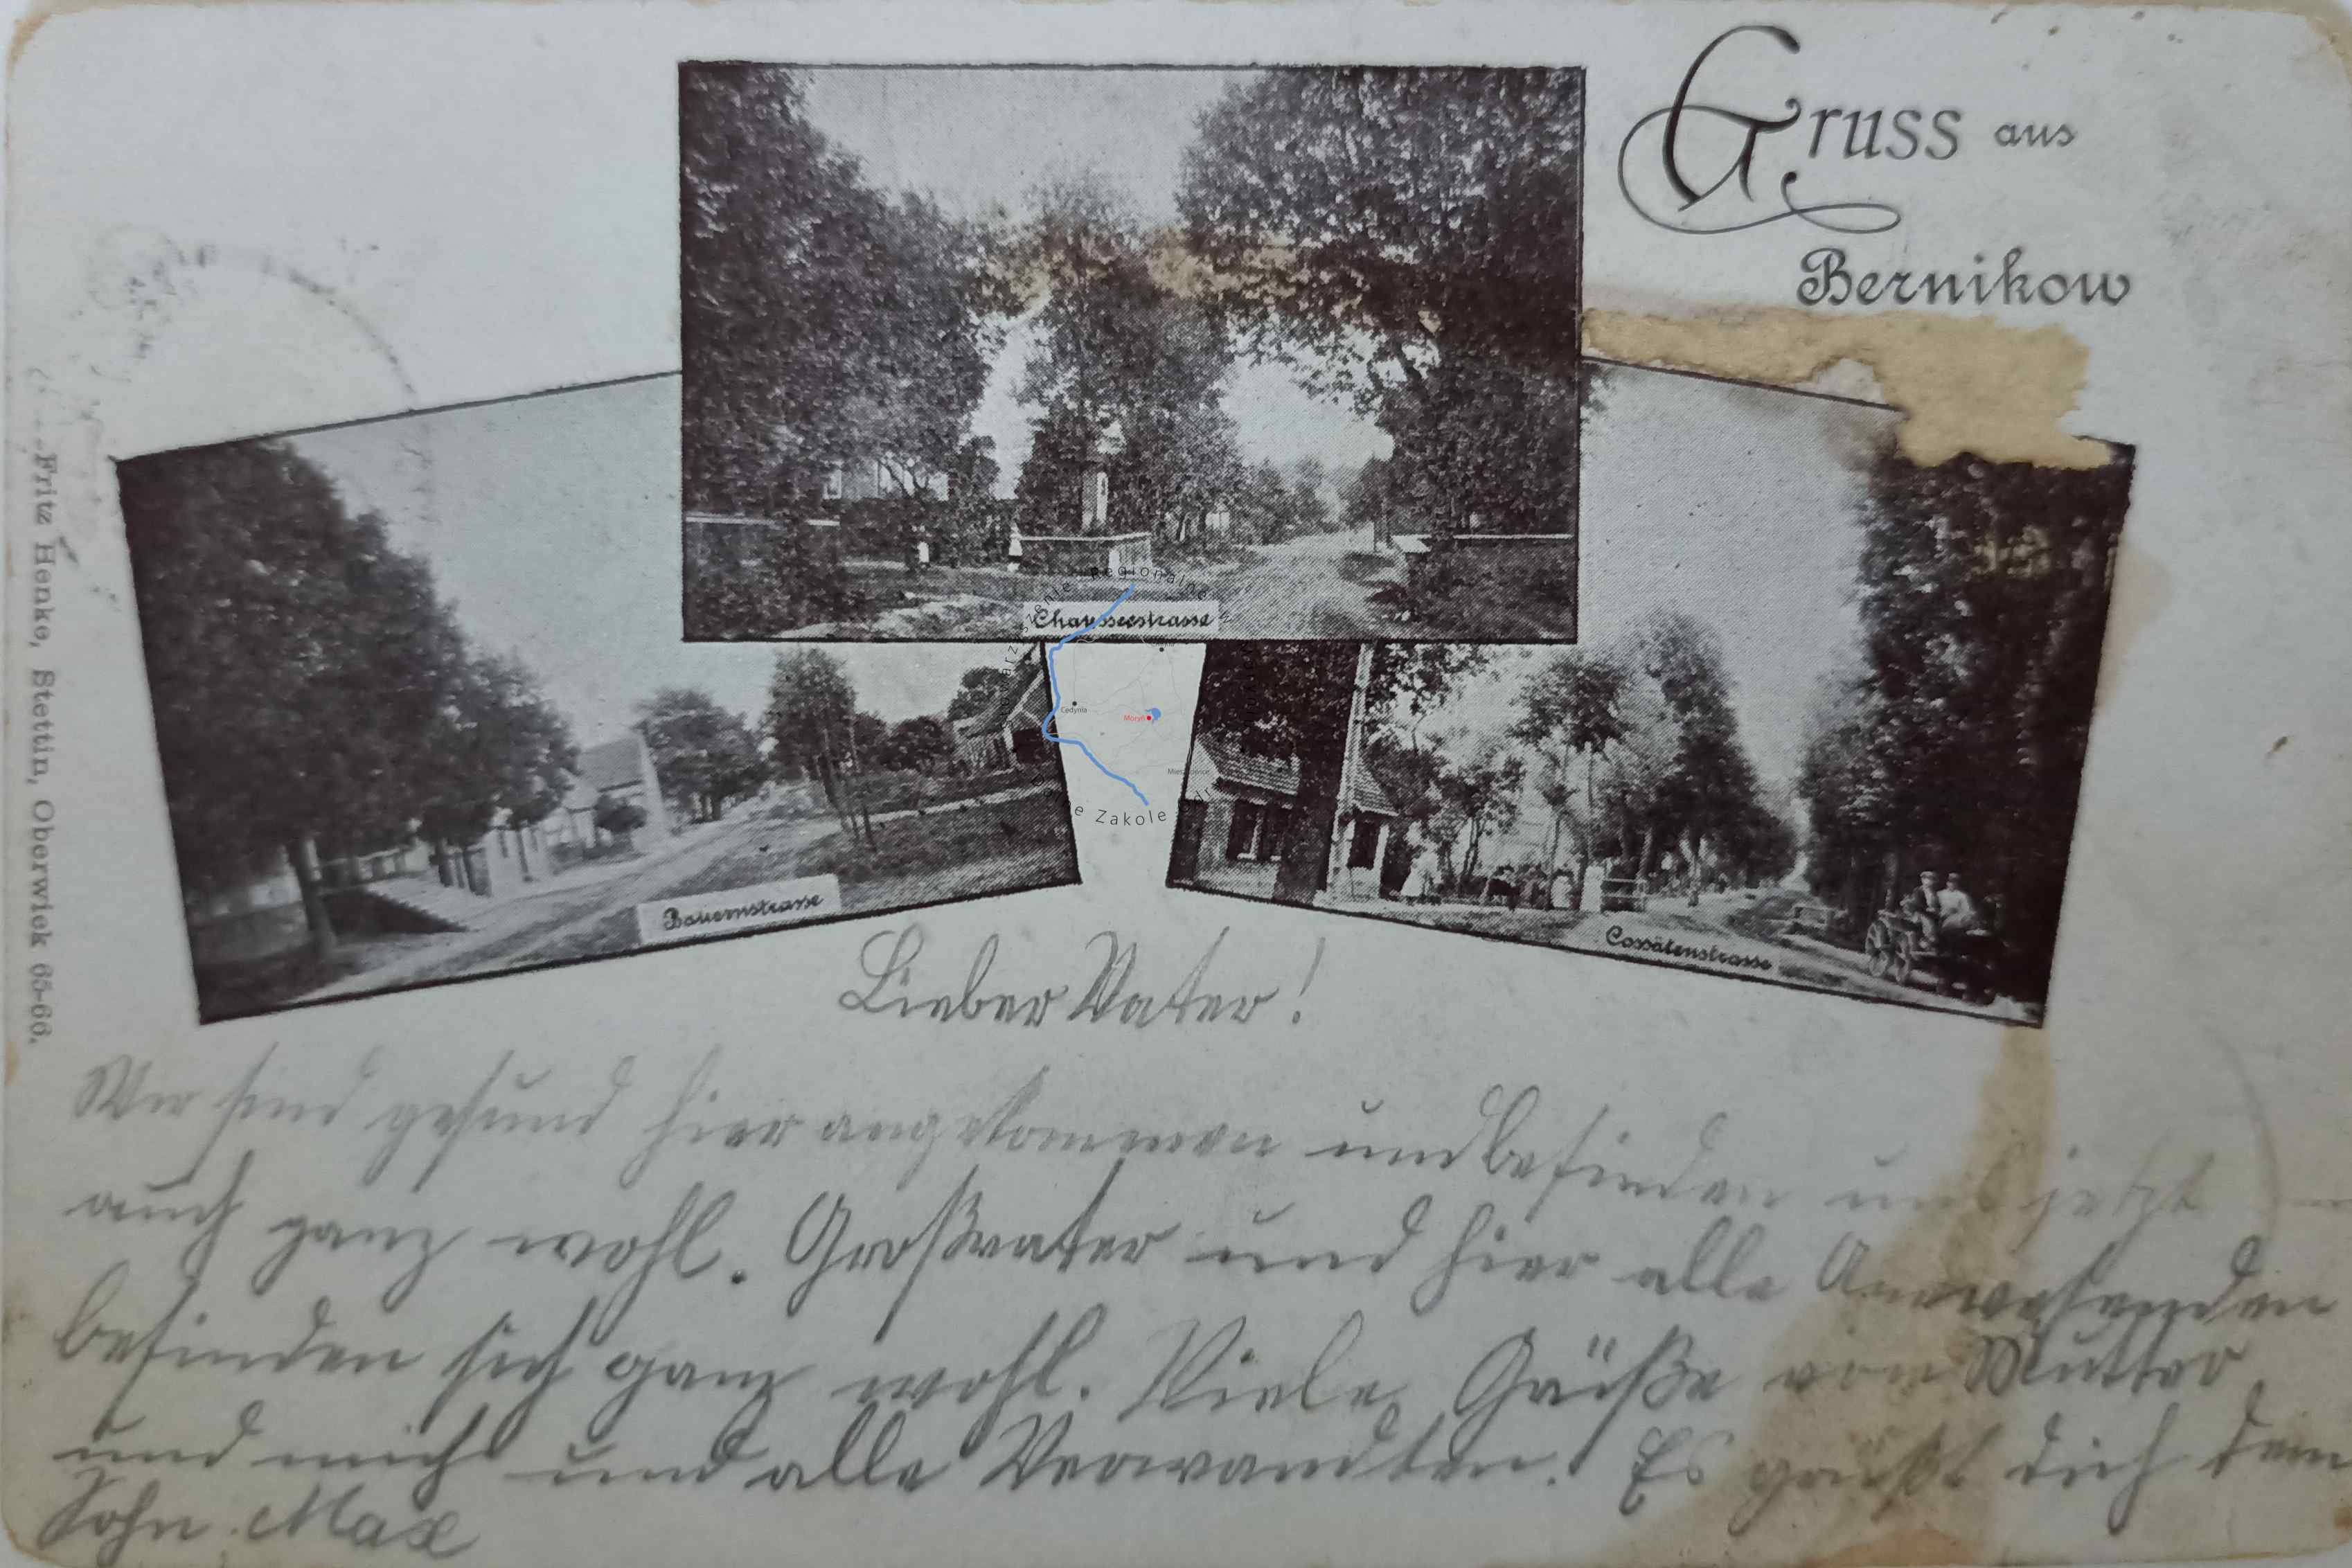 Gruss aus
Bernikow
Chausseestrasse
Bauernstrasse
Cossätenstrasse
Fritz Henke, Stettin, Oberwiek 65-66.
Regionalne
Cedynia
Moryń
Mieszkowice
Zakole
Lieber Vater!
Wir sind gesund hier angekommen und befinden uns jetzt
auch ganz wohl. Großvater und hier alle Anwesenden
befinden sich ganz wohl. Viele Grüße von Mutter
und mich und alle Verwandten. Es grüßt dich dein
Sohn Max